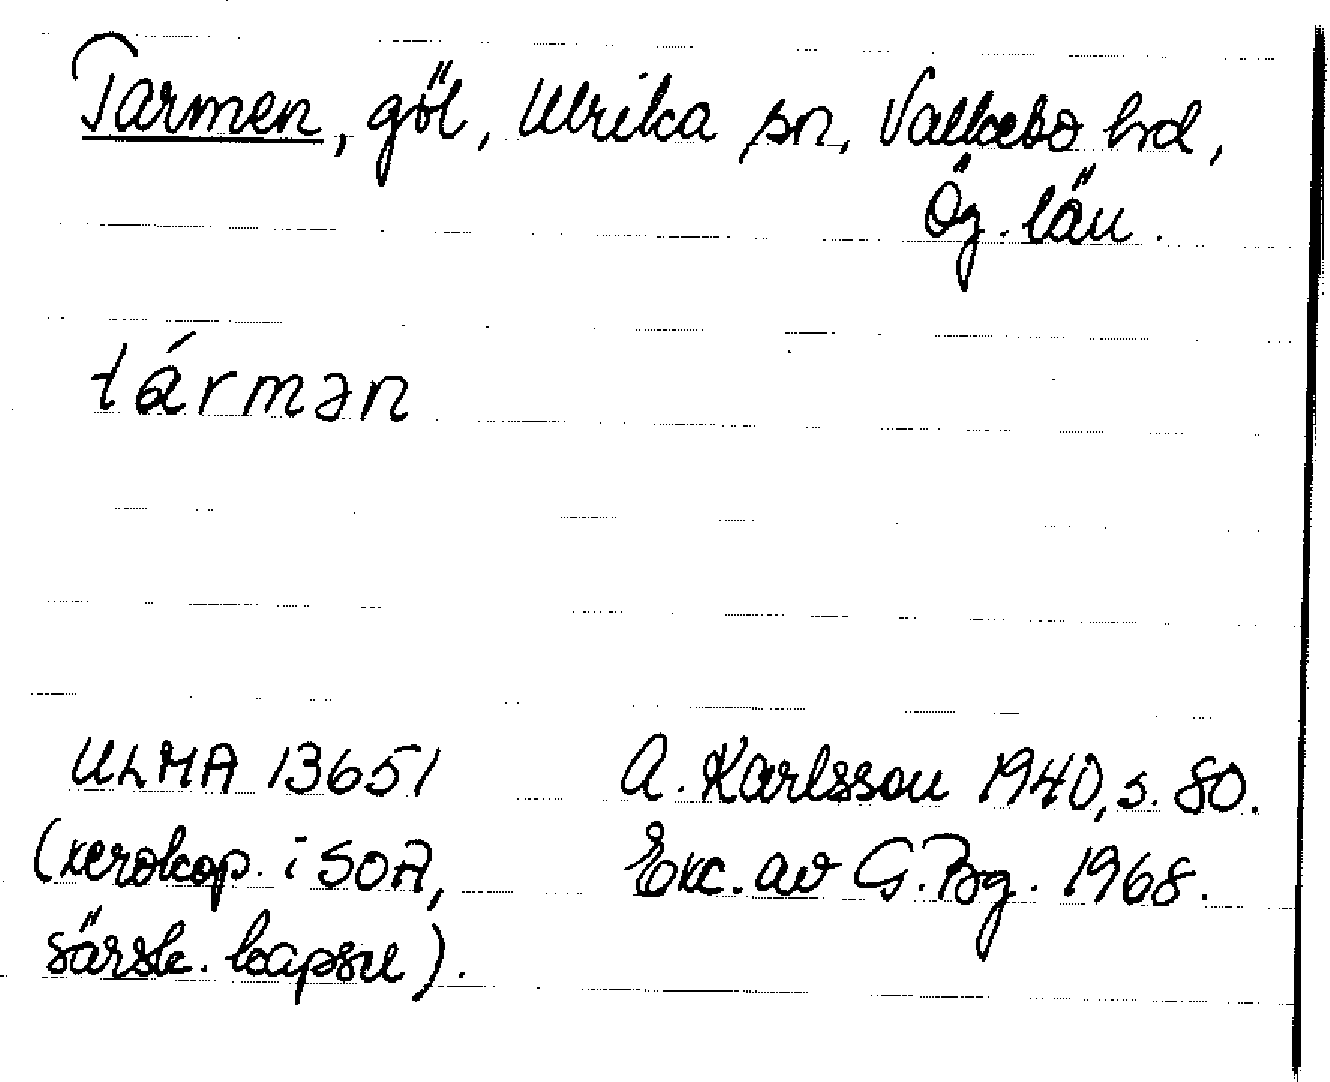 Tarmen, göl, Ulrika sn, Valkebo hd,
Ög. län.
tármən
ULMA 13651
A. Karlsson 1940, s. 80.
(xerokop. i SOA,
Exc. av G. Bg. 1968.
särsk. kapsel).